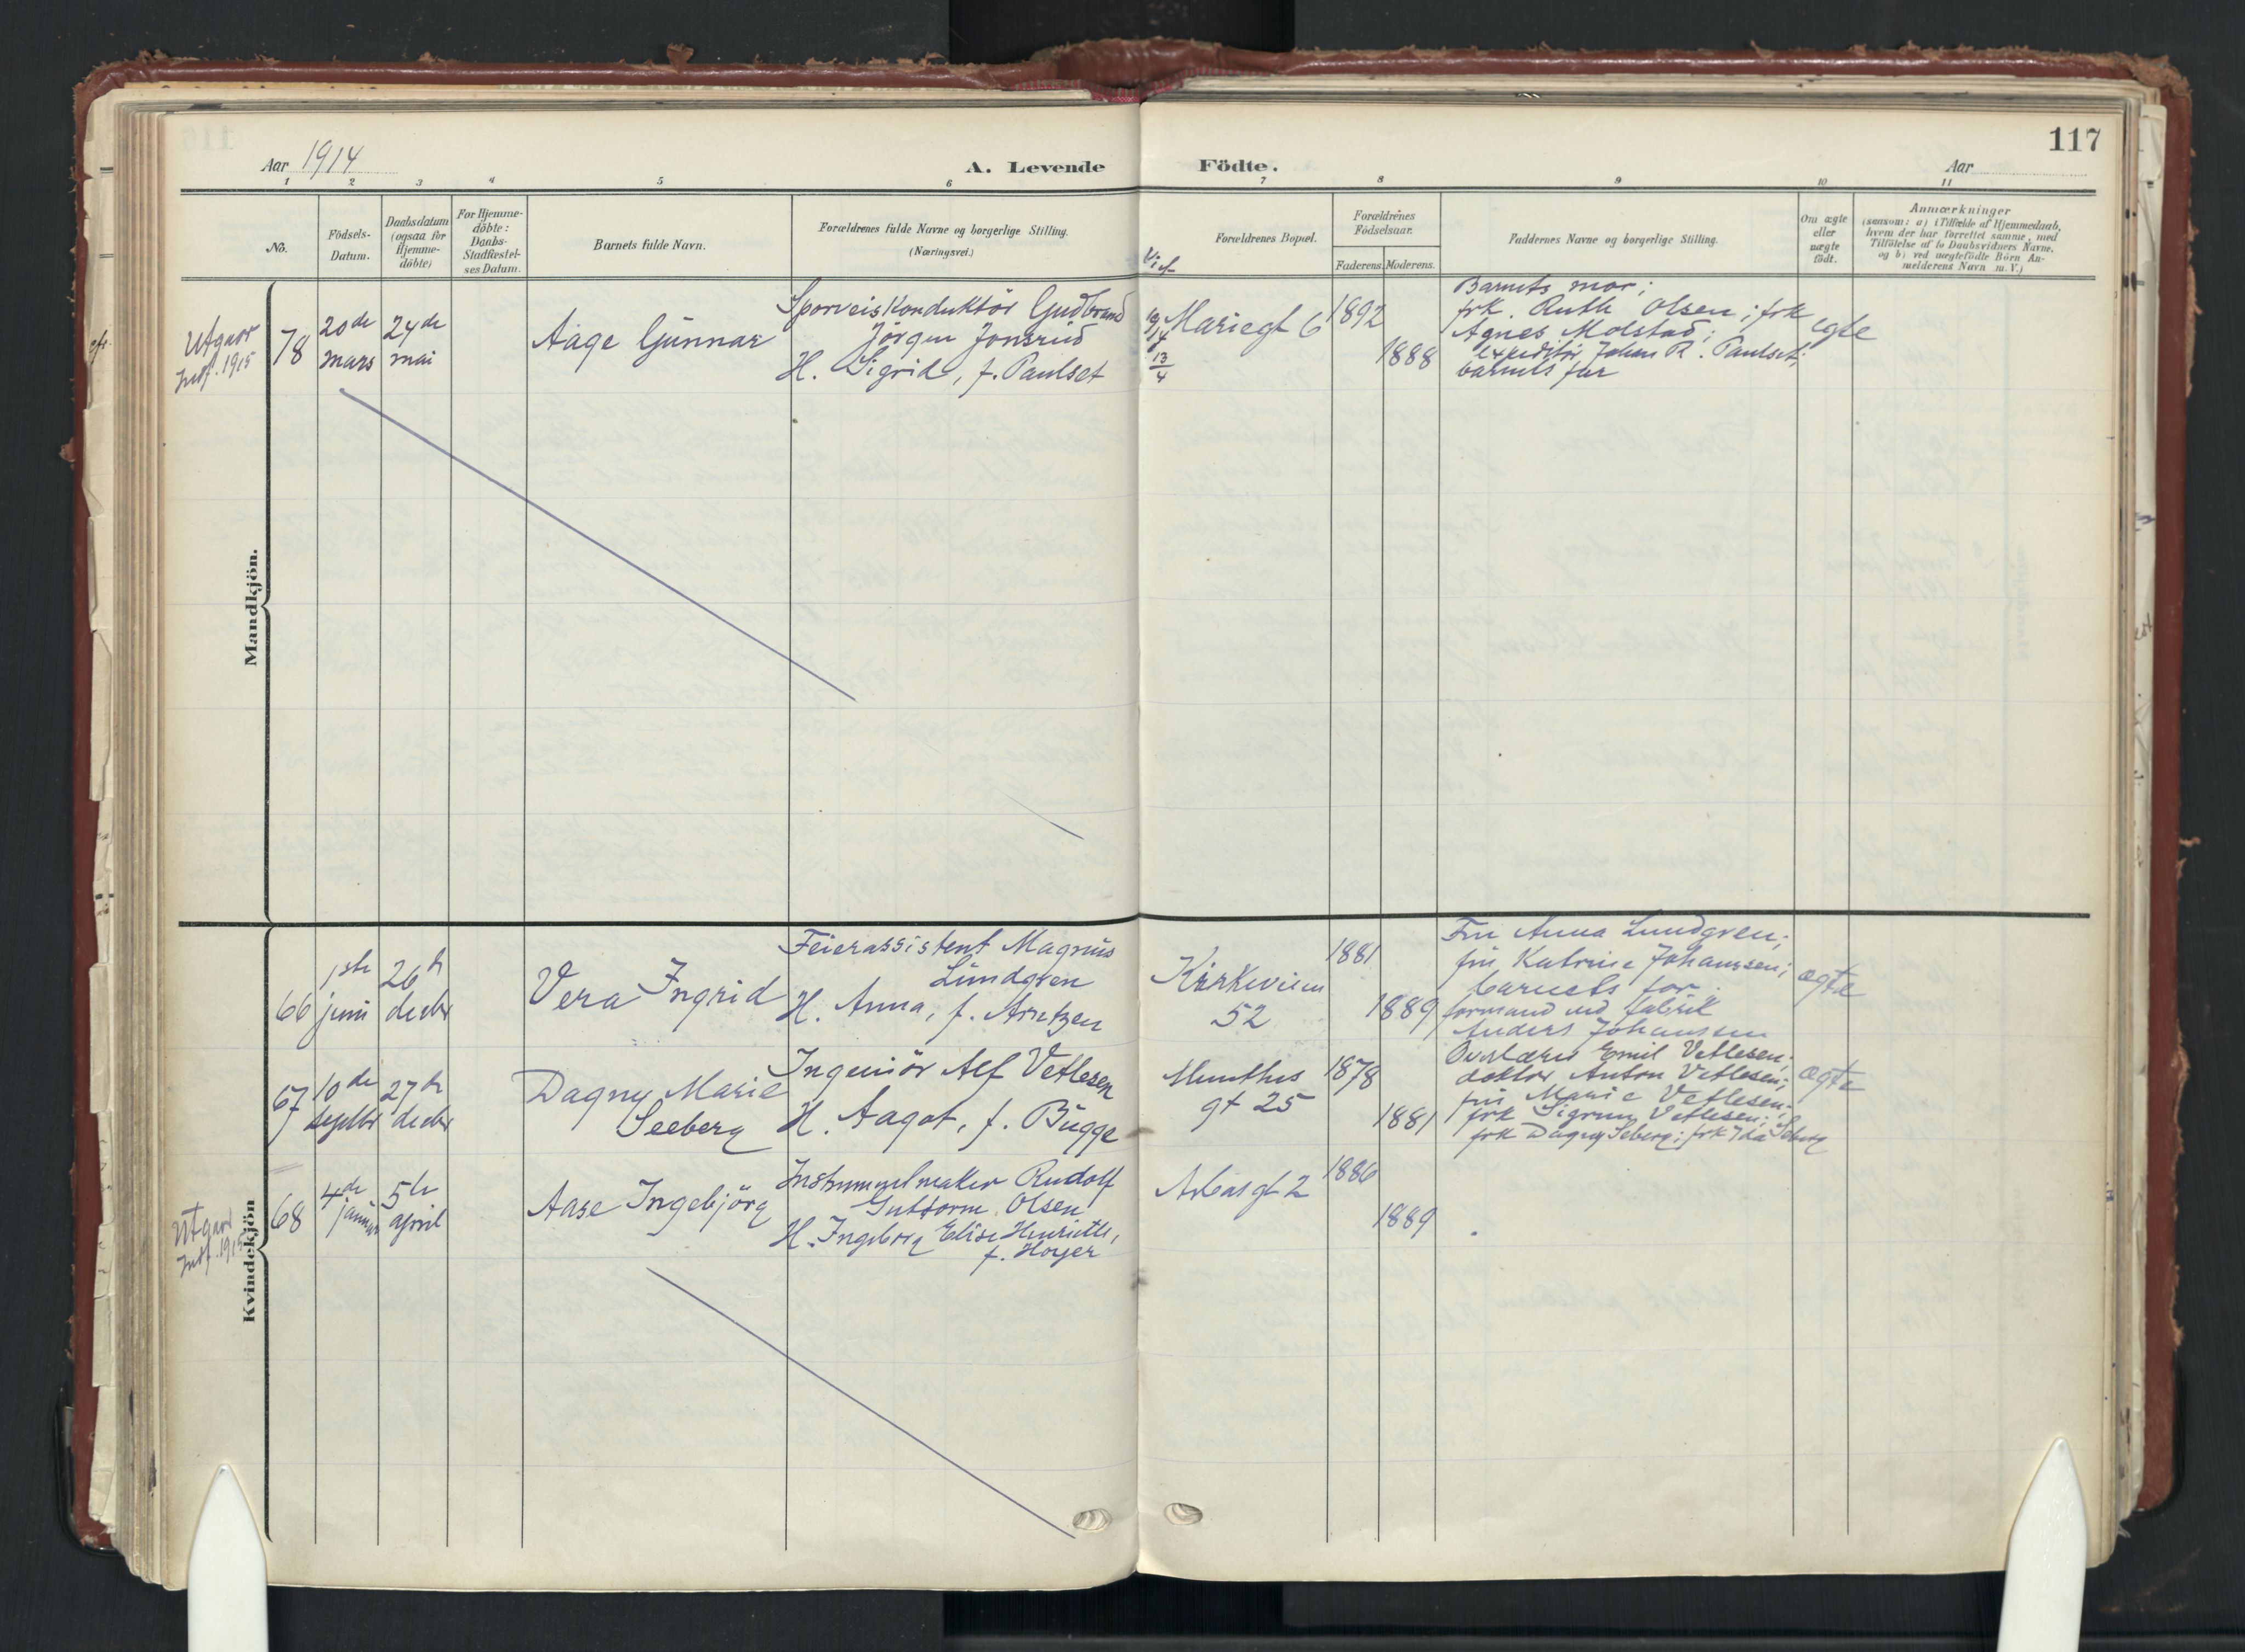 117
Aar 1914
A. Levende Födte.
Aar
1 2 3 4 5 6 7 8 9 10 11
No.
Födsels-
Datum.
Daabsdatum
(ogsaa for
Hjemme-
döbte)
For Hjemme-
döbte:
Daabs-
Stadfæstel-
ses Datum.
Barnets fulde Navn.
Forældrenes fulde Navne og borgerlige Stilling.
(Næringsvei.)
Forældrenes Bopæl.
Forældrenes
Födselsaar.
Faderens. Moderens.
Faddernes Navne og borgerlige Stilling.
Om ægte
eller
uægte
födt.
Anmærkninger
(saasom: a) i Tilfælde af Hjemmedaab,
hvem der har forrettet samme, med
Tilföielse af to Daabsvidners Navne,
og b) ved uægtefödte Börn An-
melderens Navn m. V.)
Mandkjön.
Utgaar
1915
78
20de
mars
24de
mai
Aage Gunnar
Sporveiskonduktör Gudbrand
Jörgen Jonsrud
H. Sigrid, f. Paulset
13
4
Mariegt 6
1892
1888
Barnets mor;
frk. Ruth Olsen; frk
Agnes Molstad;
expeditör Johan R. Paulset;
barnets far
egte
Kvindekjön
66
1ste
juni
26de
decbr
Vera Ingrid
Feierassistent Magnus
Lundgren
H. Anna, f. Arntzen
Kirkeveien
52
1881
1889
Fru Anna Lundgren;
fru Katrine Johanssen;
barnets far
formand ved fabrik
Anders Johansen
ægte
67
10de
septbr
27de
decbr
Dagny Marie
Seeberg
Ingeniör Alf Vetlesen
H. Aagot, f. Bugge
Munthes
gt 25
1878
1881
Overlærer Emil Vetlesen;
doktor Anton Vetlesen;
fru Marie Vetlesen;
frk Sigrun Vetlesen;
frk Dagny Seberg; frk Ida Seberg
ægte
Utgaar
1915
68
4de
januar
5te
april
Aase Ingebjörg
Instrumentmaker Rudolf
Guttorm Olsen
H. Ingeborg Elise Henriette,
f. Hoyer
Asbas gt 2
1886
1889